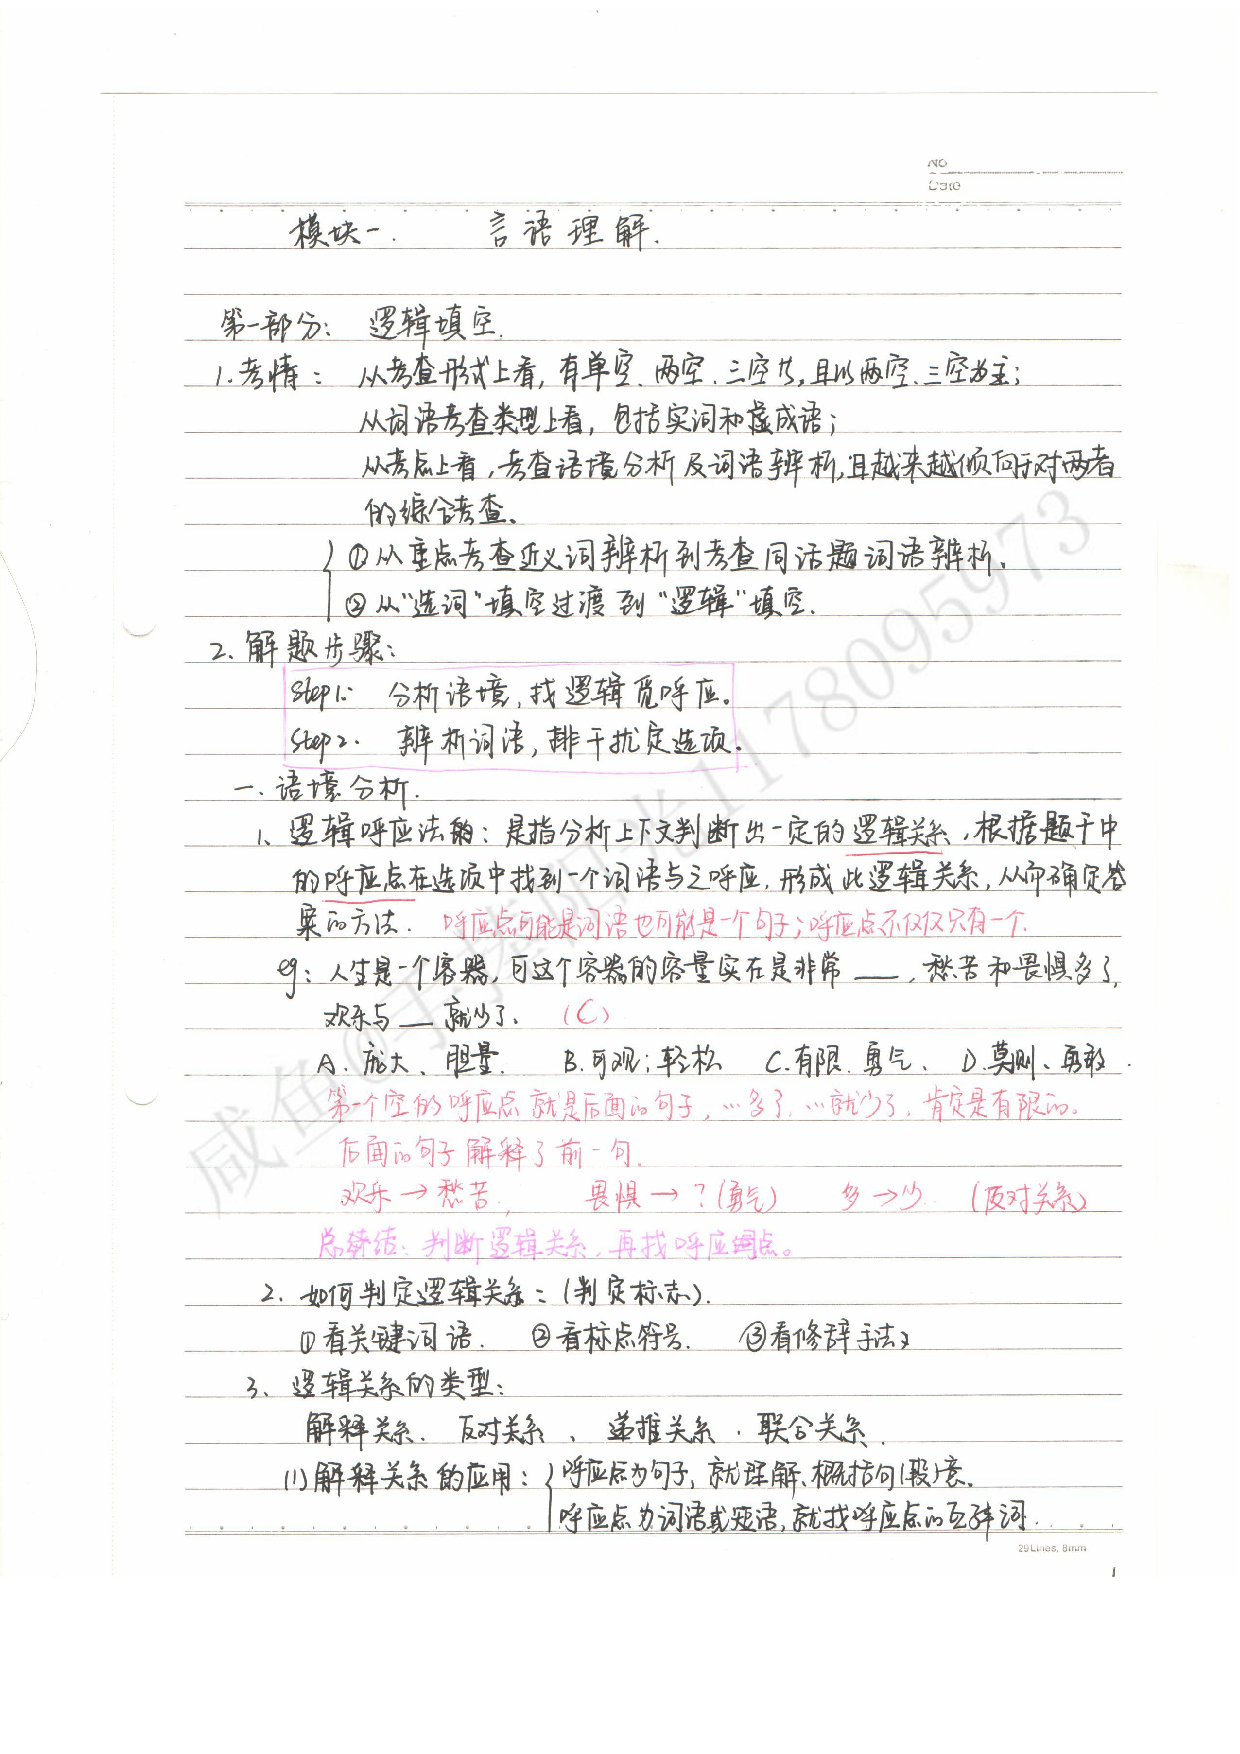 NO
Date
模块一. 言语理解.
第一部分: 逻辑填空.
1.考情: 从考查形式上看,有单空、两空、三空共,且以两空、三空为主;
从词语考查类型上看,包括实词和虚成语;
从考点上看,考查语境分析及词语辨析,且越来越倾向于对两者
的综合考查。
①从重点考查近义词辨析到考查同话题词语辨析.
②从“选词”填空过渡到“逻辑”填空.
2.解题步骤:
Step1: 分析语境,找逻辑觅呼应。
Step2. 辨析词语,排干扰定选项.
一.语境分析.
1、逻辑呼应法的:是指分析上下文判断出一定的逻辑关系,根据题干中
的呼应点在选项中找到一个词语与之呼应,形成此逻辑关系,从而确定答
案的方法. 呼应点可能是词语也可能是一个句子;呼应点不仅仅只有一个.
eg:人生是一个容器,可这个容器的容量实在是非常___,愁苦和畏惧多了,
欢乐与__就少了. (C)
A.庞大、胆量. B.可观;轻松 C.有限.勇气、 D.莫测、勇敢.
第一个空的呼应点就是后面的句子,…多了,…就少了,肯定是有限的。
后面的句子解释了前一句.
欢乐→愁苦, 畏惧→?(勇气) 多→少. (反对关系)
总结:判断逻辑关系,再找呼应点。
2.如何判定逻辑关系:(判定标志).
①看关键词语. ②看标点符号. ③看修辞手法
3、逻辑关系的类型:
解释关系、反对关系、递推关系.联合关系.
(1)解释关系的应用:呼应点为句子,就理解、概括句(段)意.
呼应点为词语或短语,就找呼应点的互释词.
29Lines, 8mm
1
咸鱼@手捧阳光1178095973